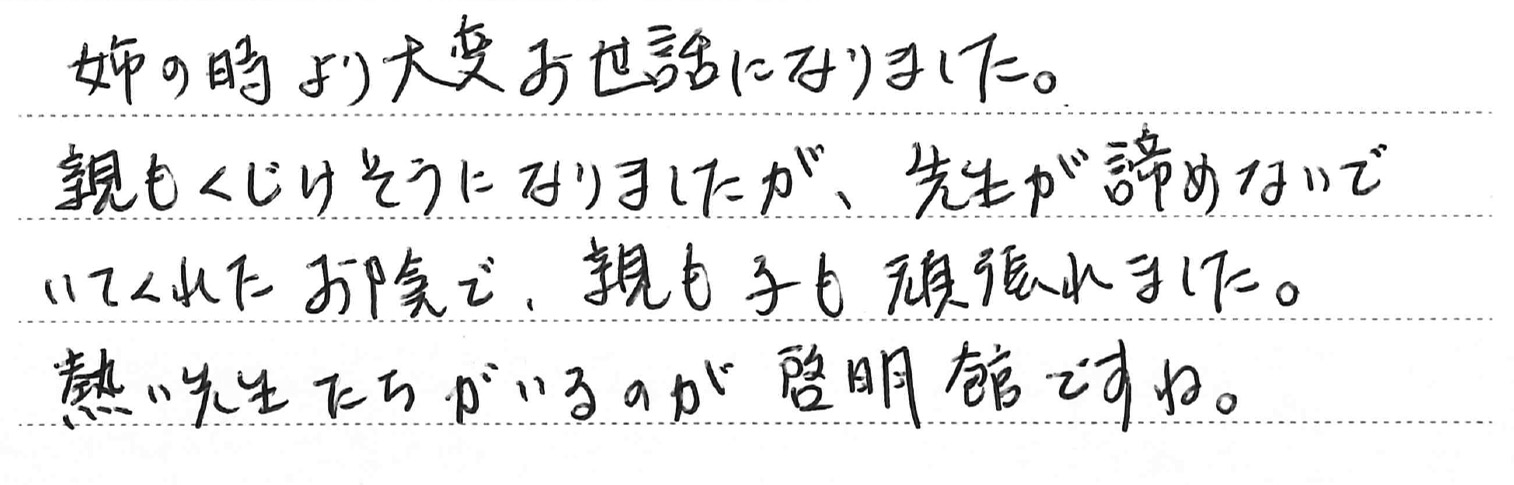 姉の時より大変お世話になりました。
親もくじけそうになりましたが、先生が諦めないで
いてくれたお陰で、親も子も頑張れました。
熱い先生たちがいるのが啓明館ですね。